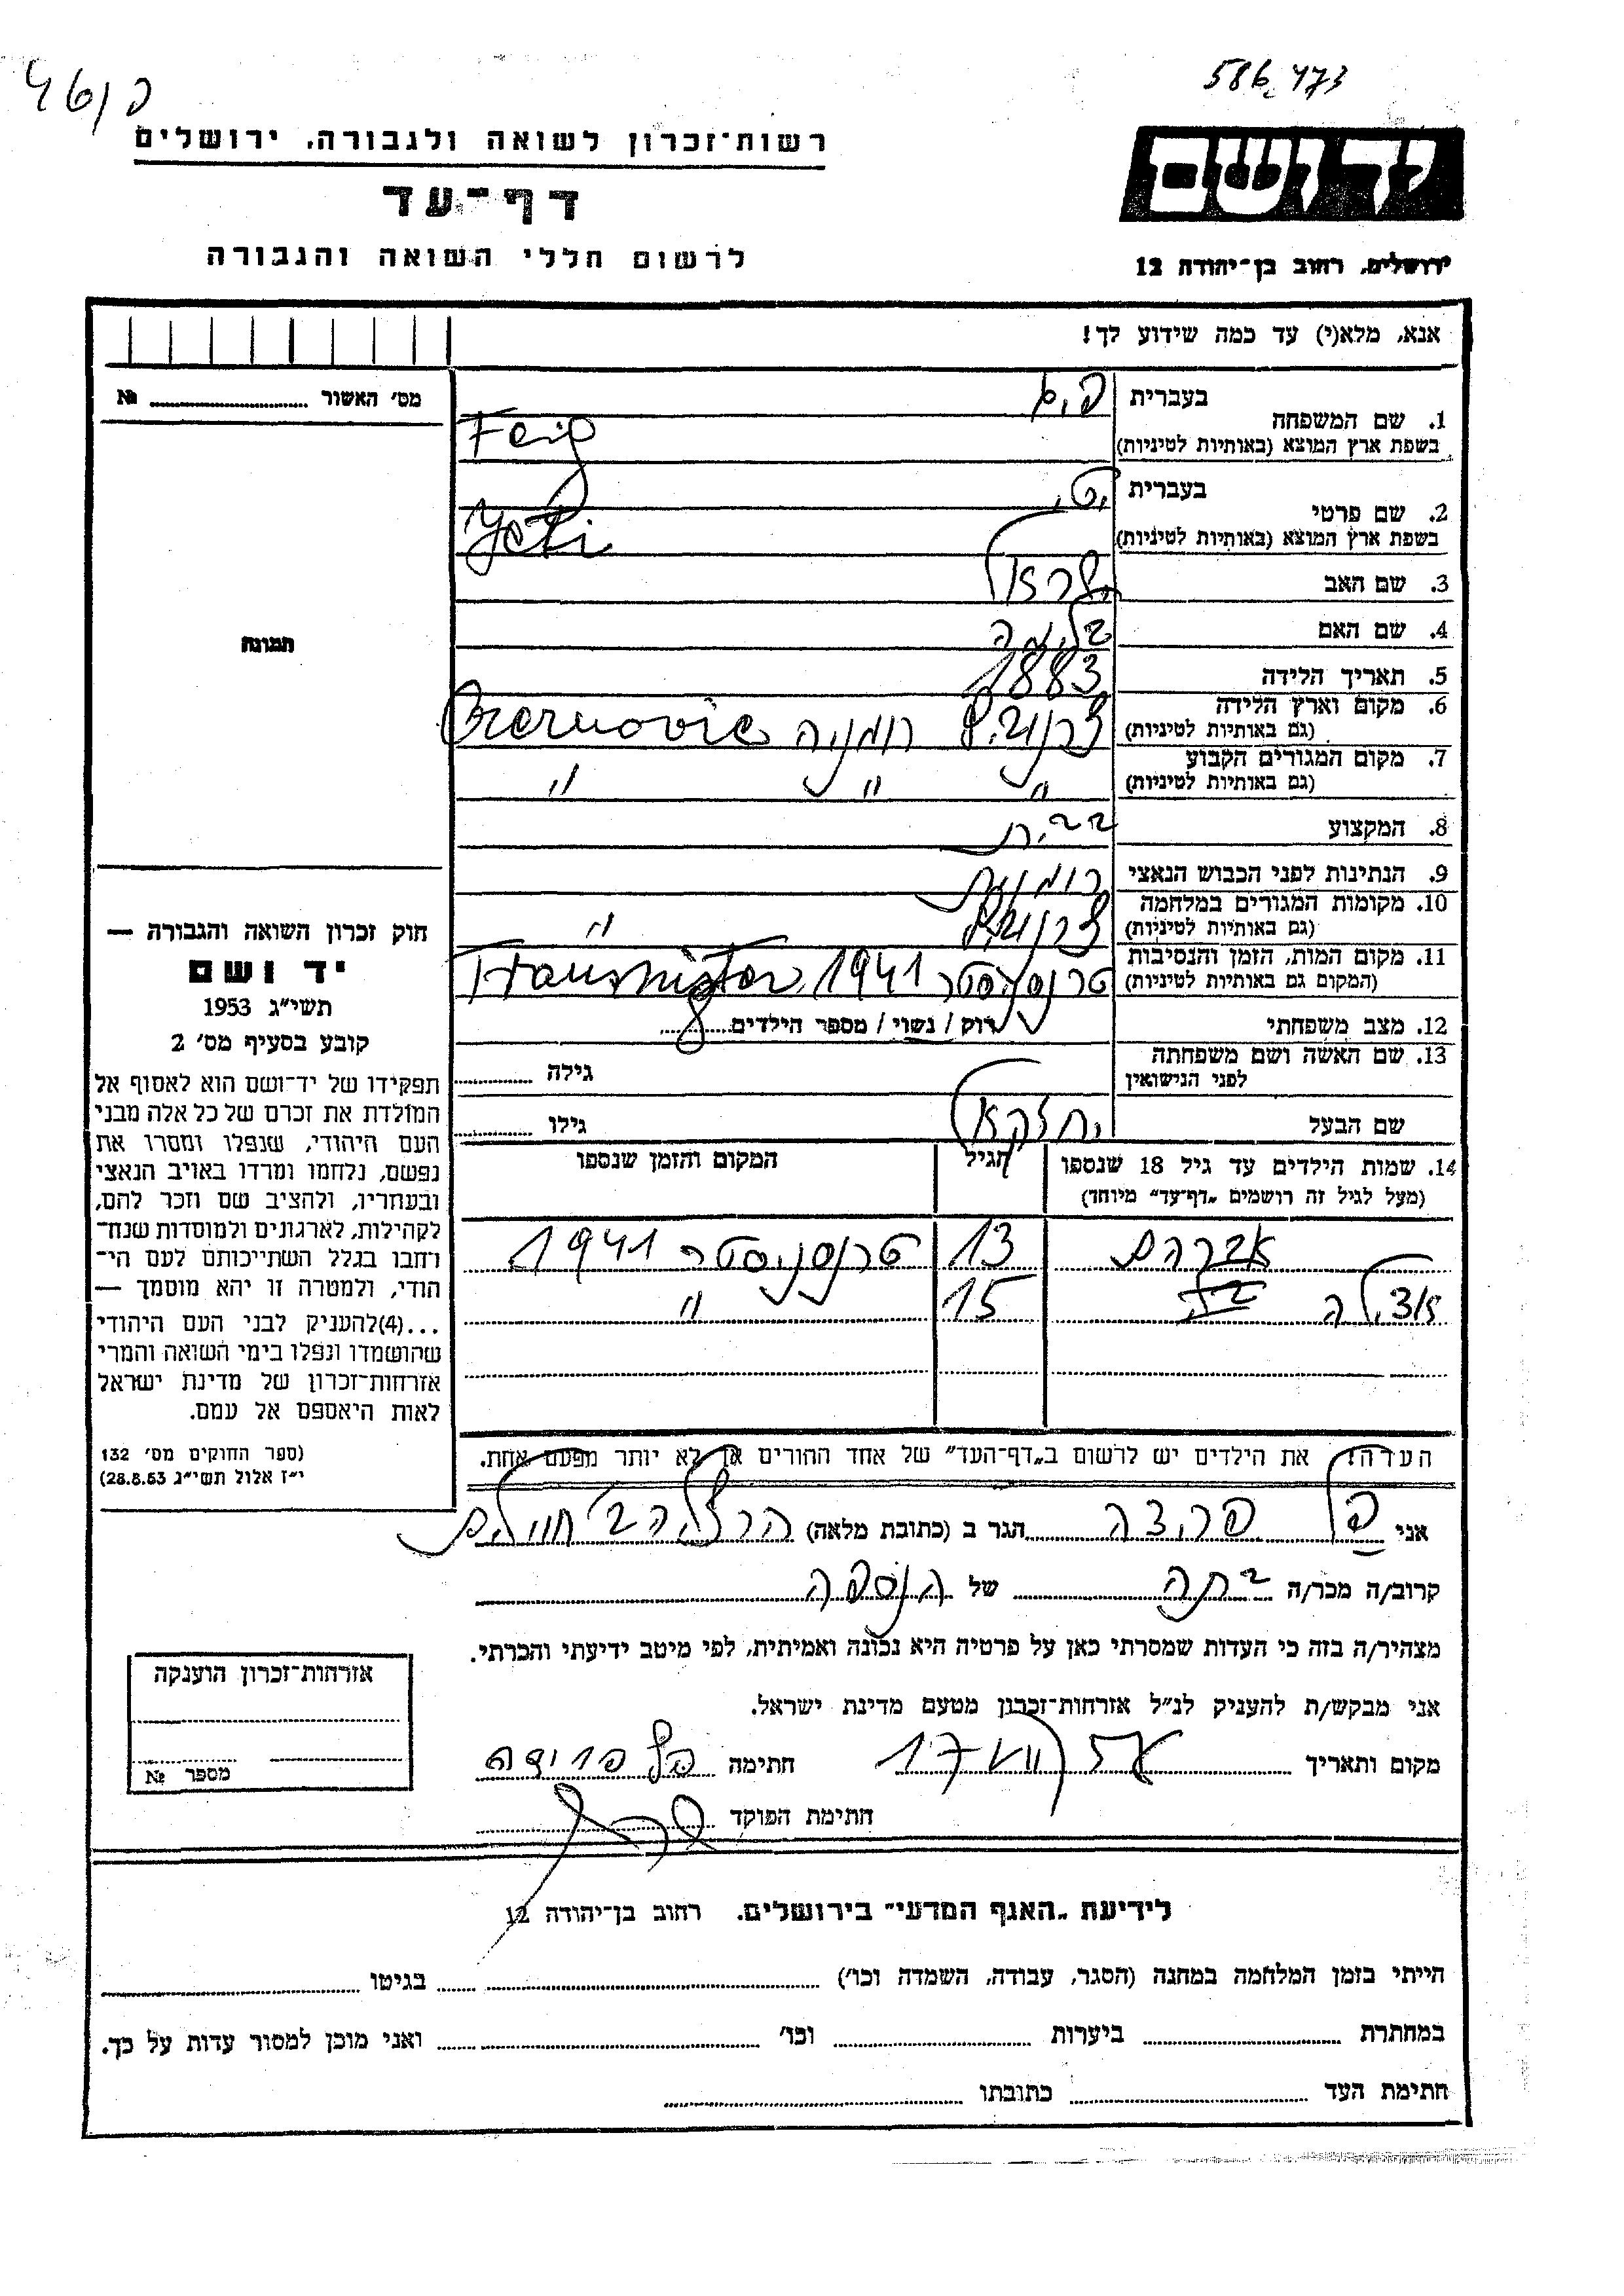 586473
46/פ
יד ושם
ירושלים, רחוב בן־יהודה 12
רשות־זכרון לשואה ולגבורה, ירושלים
דף־עד
לרשום חללי השואה והגבורה
אנא, מלא(י) עד כמה שידוע לך!
מס׳ האשור № 
1. שם המשפחה בעברית
בשפת ארץ המוצא (באותיות לטיניות) Feig
2. שם פרטי בעברית יטי
בשפת ארץ המוצא (באותיות לטיניות) Jeti
3. שם האב ישראל
4. שם האם
5. תאריך הלידה 1883
6. מקום וארץ הלידה צרנוביץ רומניה Czernovic
(גם באותיות לטיניות)
7. מקום המגורים הקבוע " " "
(גם באותיות לטיניות)
8. המקצוע
9. הנתינות לפני הכבוש הנאצי רומנית
10. מקומות המגורים במלחמה צרנוביץ "
(גם באותיות לטיניות)
11. מקום המות, הזמן והנסיבות טרנסניסטר 1941 Transnister
(המקום גם באותיות לטיניות)
12. מצב משפחתי רוק / נשוי / מספר הילדים 8
13. שם האשה ושם משפחתה גילה
לפני הנישואין
שם הבעל יחזקאל גילו
14. שמות הילדים עד גיל 18 שנספו הגיל המקום והזמן שנספו
(מעל לגיל זה רושמים „דף־עד״ מיוחד)
אברהם 13 טרנסניסטר 1941
15 "
הערה: את הילדים יש לרשום ב„דף־העד״ של אחד ההורים אך לא יותר מפעם אחת.
תמונה
חוק זכרון השואה והגבורה —
יד ושם
תשי״ג 1953
קובע בסעיף מס׳ 2
תפקידו של יד־ושם הוא לאסוף אל
המולדת את זכרם של כל אלה מבני
העם היהודי, שנפלו ומסרו את
נפשם, נלחמו ומרדו באויב הנאצי
ובעוזריו, ולהציב שם וזכר להם,
לקהילות, לארגונים ולמוסדות שנח־
רבו בגלל השתייכותם לעם הי־
הודי, ולמטרה זו יהא מוסמך —
...(4) להעניק לבני העם היהודי
שהושמדו ונפלו בימי השואה והמרי
אזרחות־זכרון של מדינת ישראל
לאות היאספם אל עמם.
(ספר החוקים מס׳ 132
י״ז אלול תשי״ג 28.8.53)
אני פרידה הגר ב (כתובת מלאה) הרצליה ב׳
קרוב/ה מכר/ה בתה של הנספה
מצהיר/ה בזה כי העדות שמסרתי כאן על פרטיה היא נכונה ואמיתית, לפי מיטב ידיעתי והכרתי.
אני מבקש/ת להעניק לנ״ל אזרחות־זכרון מטעם מדינת ישראל.
מקום ותאריך חתימה פרידה
חתימת הפוקד
אזרחות־זכרון הוענקה
מספר №
לידיעת „האגף המדעי״ בירושלים. רחוב בן־יהודה 12
הייתי בזמן המלחמה במחנה (הסגר, עבודה, השמדה וכו׳) בגיטו
במחתרת ביערות וכו׳ ואני מוכן למסור עדות על כך.
חתימת העד כתובתו